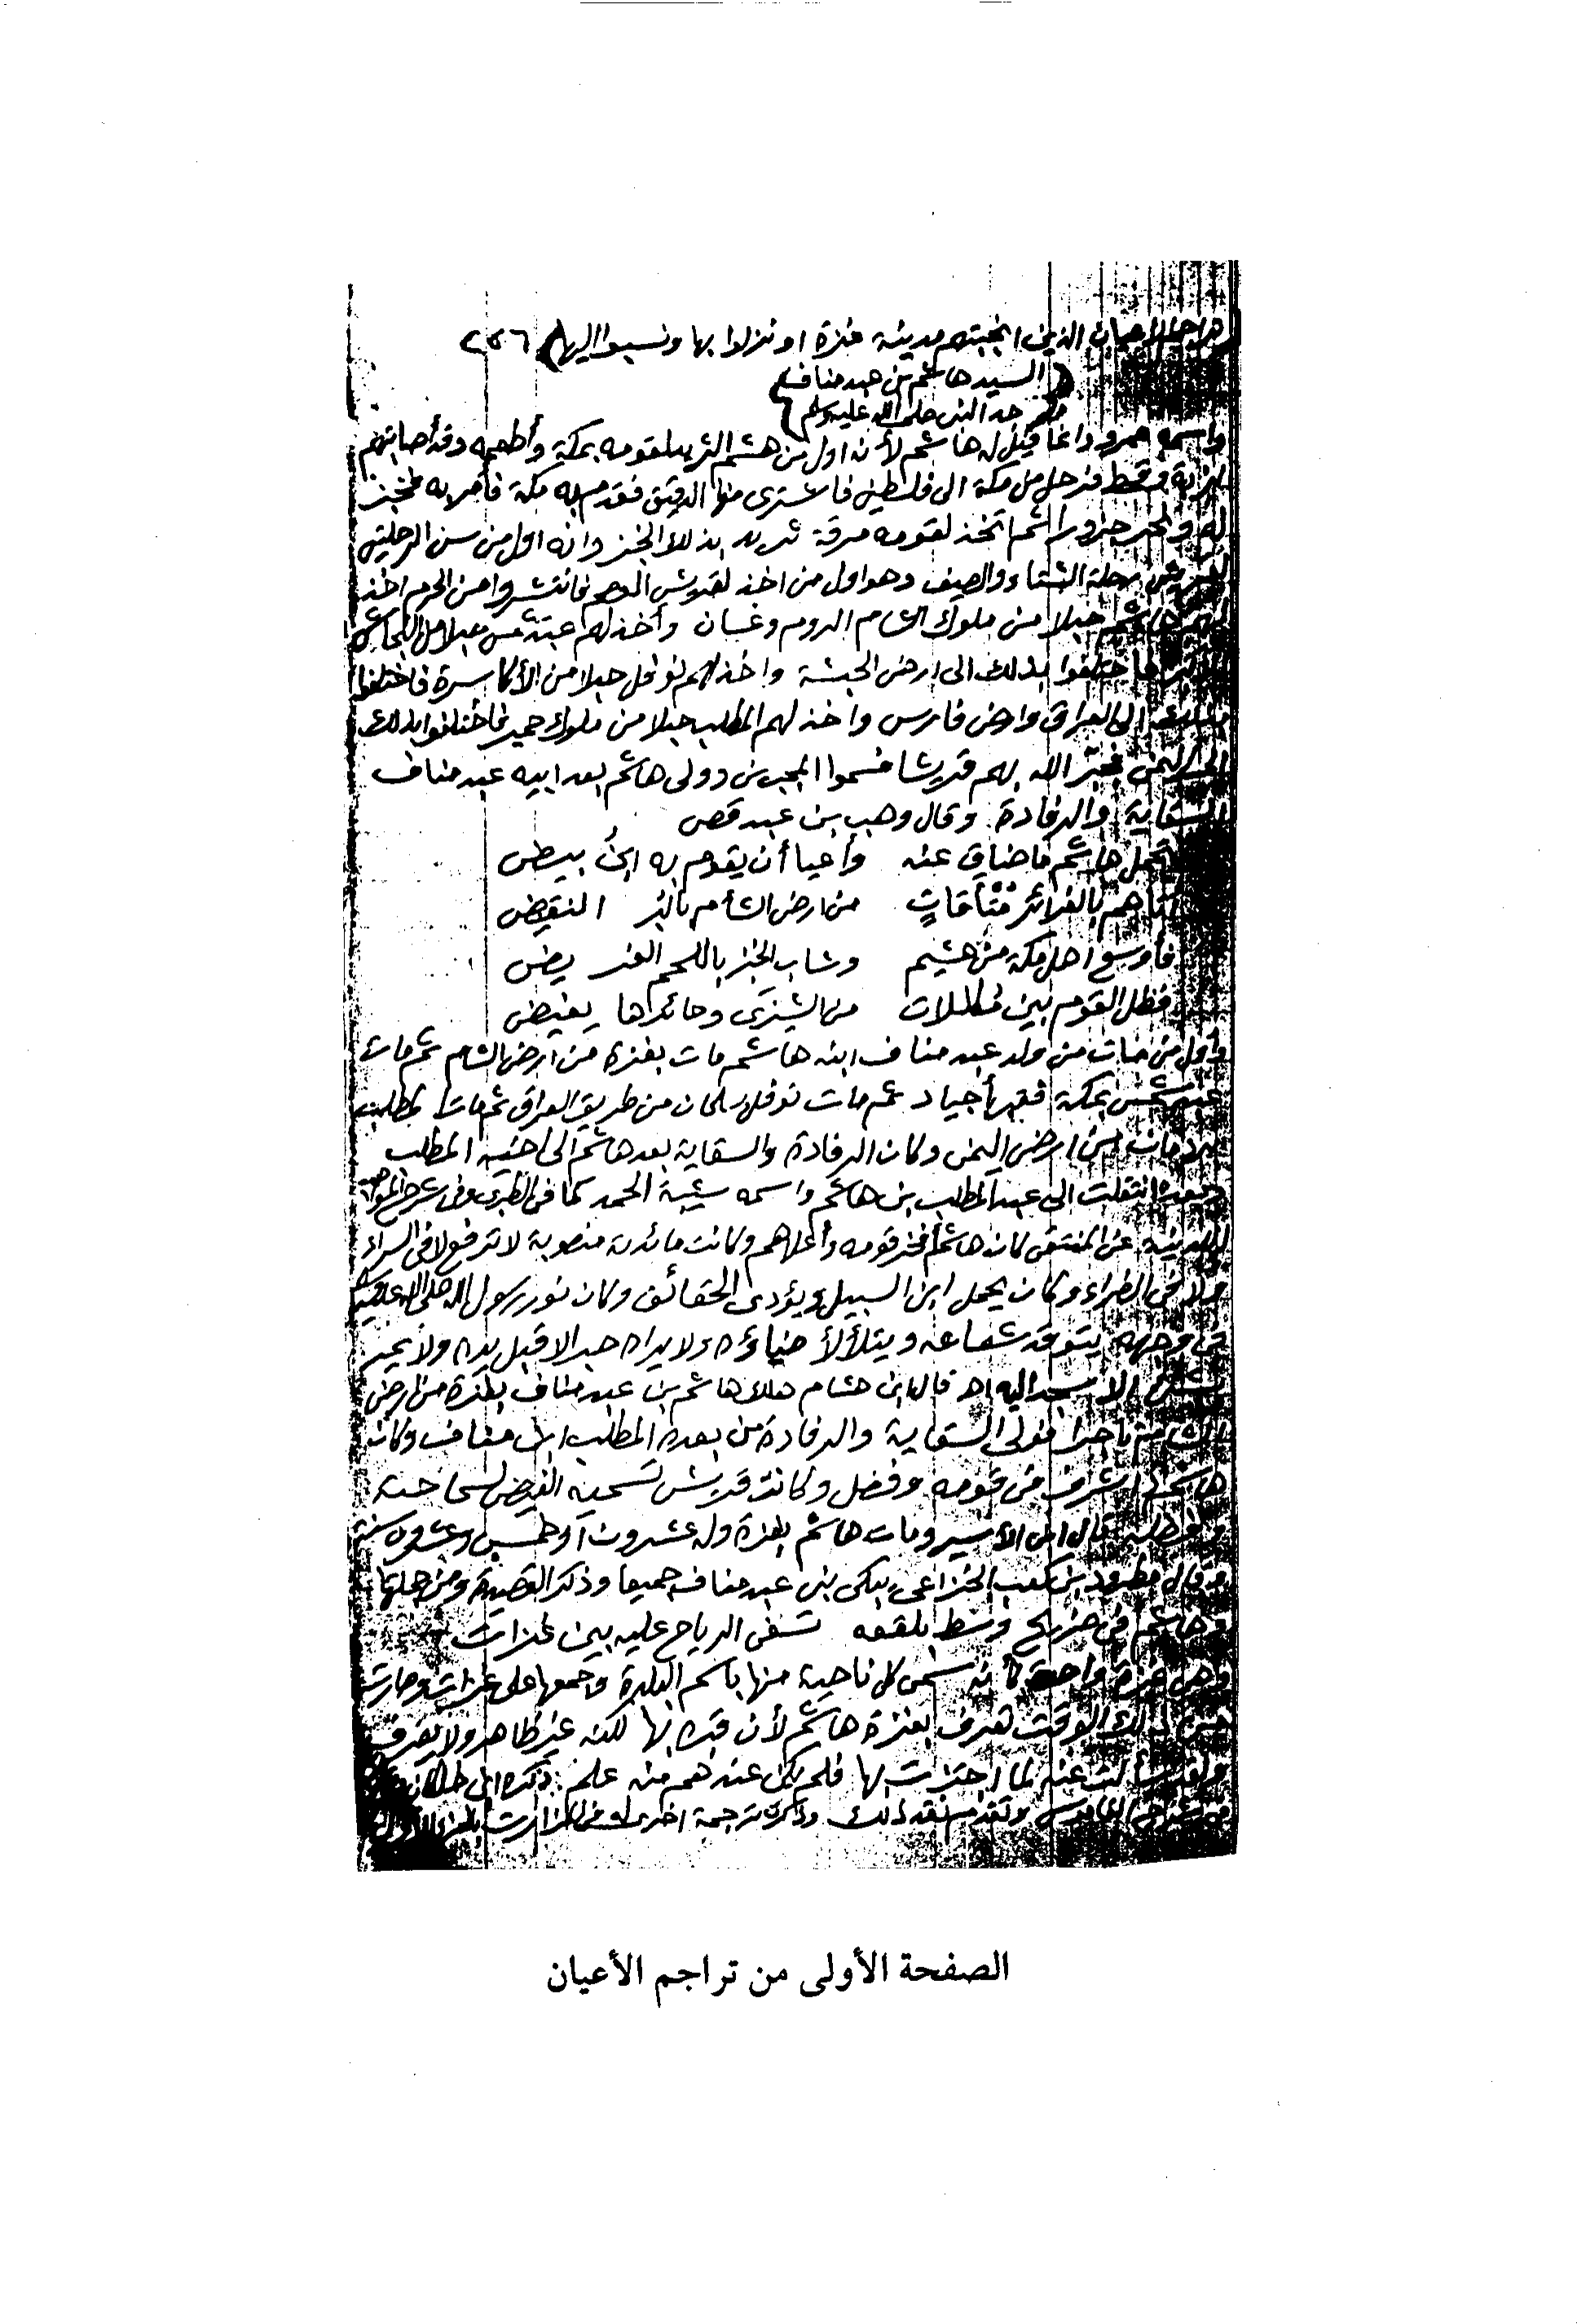 تراجم الأعيان الذين انجبتهم مدينة غزة او نزلوا بها ونسبوا اليها ٢٢٦
السيد هاشم بن عبد مناف
جد النبي صلى الله عليه وسلم
واسمه عمرو وانما قيل له هاشم لأنه اول من هشم الثريد لقومه بمكة وأطعمه وقد أصابتهم
لزبة وقحط فرحل من مكة الى فلسطين فاشترى منها الدقيق فقدم به مكة فأمر به فخبز
له ونحر جزورا ثم اتخذ لقومه مرقة ثريد بذلك الخبز وانه اول من سن الرحلتين
لقريش رحلة الشتاء والصيف وهو اول من اخذ لقريش العصم فانتشروا من الحرم اخذ
لهم هاشم حبلا من ملوك الشام الروم وغسان وأخذ لهم عبد شمس حبلا من النجاشي
فاختلفوا بذلك الى ارض الحبشة واخذ لهم نوفل حبلا من الأكاسرة فاختلفوا
بذلك الى العراق وارض فارس واخذ لهم المطلب حبلا من ملوك حمير فاختلفوا بذلك
الى اليمن فجبر الله بهم قريشا فسموا المجبرين وولى هاشم بعد ابيه عبد مناف
السقاية والرفادة وقال وهب بن عبد قصي
تحمل هاشم ما ضاق عنه وأعيا أن يقوم به ابن بيض
أتاهم بالغرائر متأقات من ارض الشأم بالبر النقيض
فأوسع اهل مكة من هشيم وشاب الخبز باللحم الغريض
فظل القوم بين مكللات من الشيزى وحائرها يفيض
وأول من مات من ولد عبد مناف ابنه هاشم مات بغزة من ارض الشام ثم مات
عبد شمس بمكة فقبر بأجياد ثم مات نوفل بسلمان من طريق العراق ثم مات المطلب
بردمان من ارض اليمن وكان الرفادة والسقاية بعد هاشم الى اخيه المطلب
وبعده انتقلت الى عبد المطلب بن هاشم واسمه شيبة الحمد كما في الطبري وفي شرح المواهب
اللدنية عن المنتقى كان هاشم أفخر قومه وأعلاهم وكانت مائدته منصوبة لا ترفع لا في السراء
ولا في الضراء وكان يحمل ابن السبيل ويؤدي الحقائق وكان نور رسول الله صلى الله عليه وسلم
في وجهه يتوقد شعاعه ويتلألأ ضياؤه ولا يراه حبر الا قبل يده ولا يمر
بشيء الا سجد اليه اهـ قال ابن هشام هلك هاشم بن عبد مناف بغزة من ارض
الشام تاجرا فولي السقاية والرفادة من بعده المطلب ابن مناف وكان
ذا شرف في قومه وفضل وكانت قريش تسميه الفيض لسماحته
وفضله قال ابن الأثير ومات هاشم بغزة وله عشرون أو خمس وعشرون سنة
وقال مطرود بن كعب الخزاعي يبكي بني عبد مناف جميعا وذكر القصيدة ومن جملتها
وهاشم في ضريح وسط بلقعه تسفى الرياح عليه بين غزات
وهي غزة واحدة كأنه سمى كل ناحية منها باسم البلدة وجمعها على غزات وصارت
من ذلك الوقت تعرف بغزة هاشم لأن قبره بها لكنه غير ظاهر ولا يعرف
ولقد سألت عنه لما اجتزت بها فلم يكن عندهم منه علم ذكره ابن خلكان
وتقدم نقد ذلك وذكر ترجمة اخرى له في المزارات بالجزء الأول
الصفحة الأولى من تراجم الأعيان